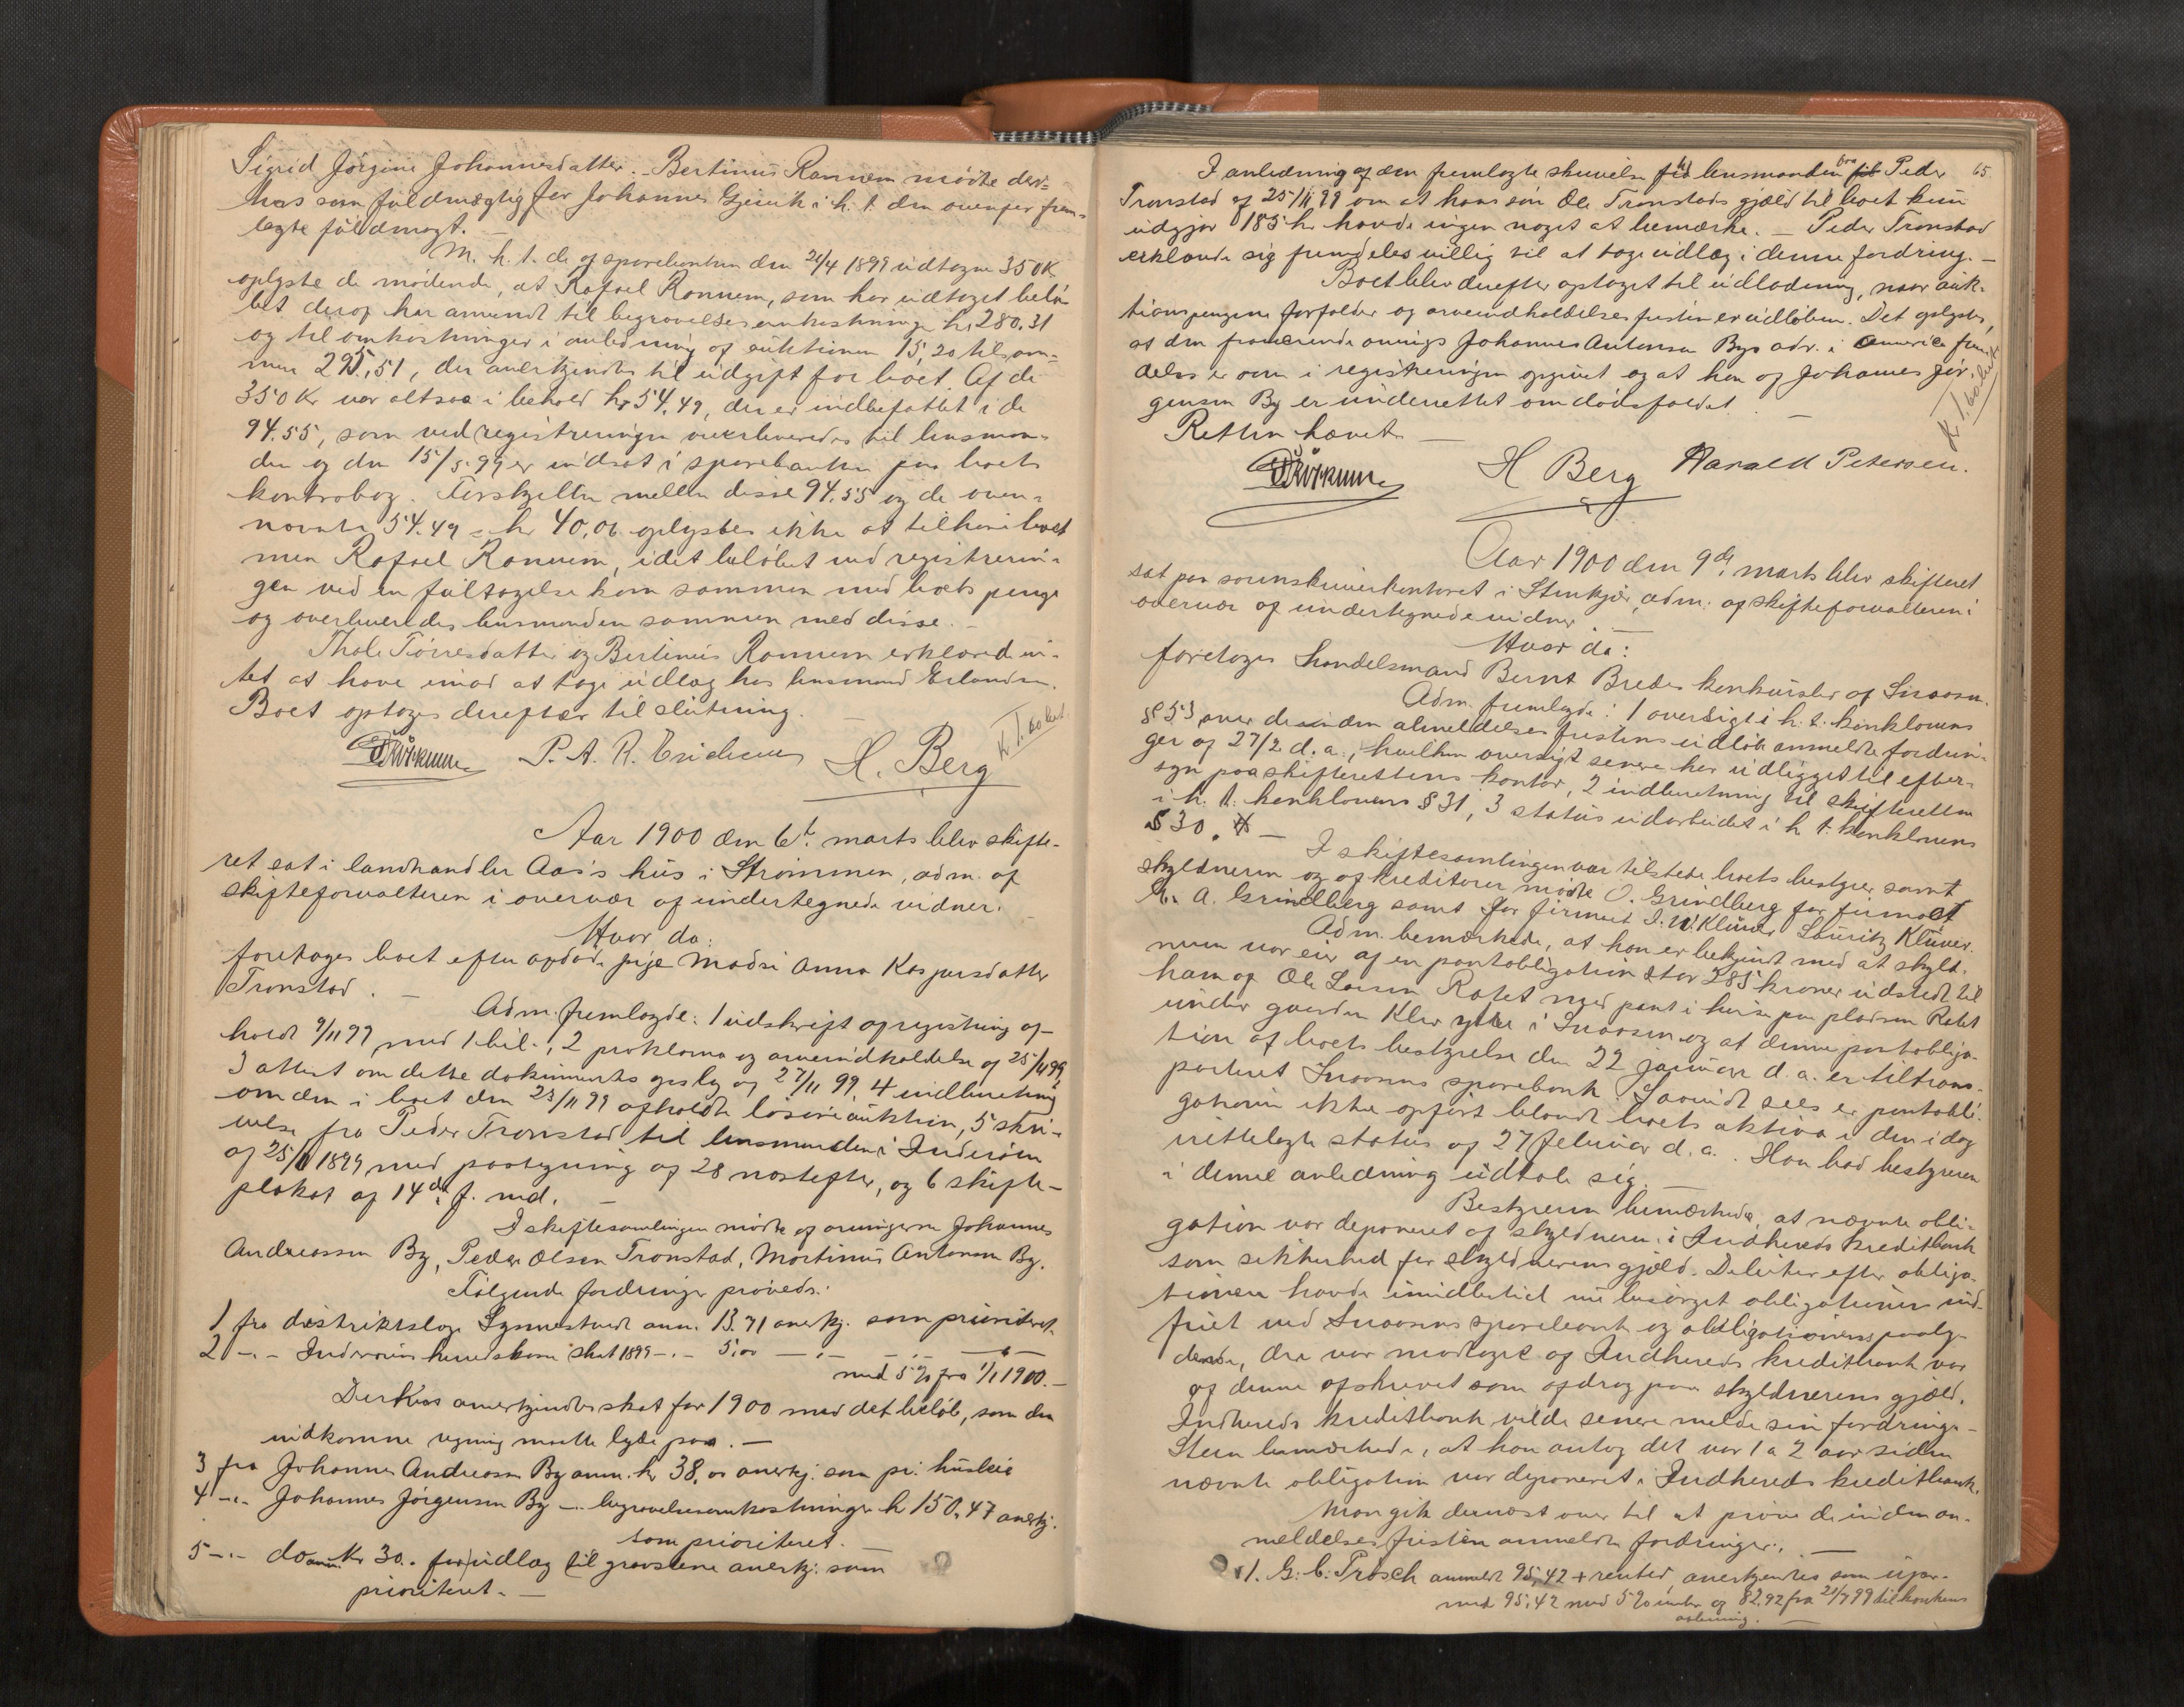 Sigrid Jørgine Johannesdatter. - Bertinus Rannem mødte der-
hos som fuldmægtig for Johannes Gjeirik i h. t. den ovenfor frem-
lagte fuldmagt. -
M. h. t. de af sparebanken den 21/4 1899 udtagne 350 K.
oplyste de mødende, at Rafael Rannem, som har udtaget belø-
bet deraf har anvendt til begravelsesomkostninger kr 280.31
og til omkostninger i anledning af auktionen 15,20 tilsam-
men 295,51, der anerkjendtes til udgift for boet. Af de
350 Kr var altsaa i behold kr 54.49, der er indbefattet i de
94.55, som ved registreringen overleveredes til lensman-
den og den 15/5.99 er indsat i sparebanken paa boets
kontrabog. Forskjellen mellem disse 94.55 og de oven-
nævnte 54.49 = kr 40,06 oplystes ikke at tilhøre boet
men Rafael Rannem, idet beløbet ved registrerin-
gen ved en feiltagelse kom sammen med boets penge
og overleveredes lensmanden sammen med disse. -
Thale Tørresdatter og Bertinus Rannem erklærede in-
tet at have imod at tage udlæg hos lensmand Erlandsen.
Boet optages derefter til slutning. -
P. A. R. Erichsen H. Berg
Aar 1900 den 6t. marts blev skifte-
ret sat i landhandler Aas's hus i Strømmen, adm. af
skifteforvalteren i overvær af undertegnede vidner. -
Hvor da:
foretages boet efter afdøde pige Madsi Anna Kaspersdatter
Tronstad. -
Adm. fremlagde: 1 udskrift af registring af-
holdt 9/11 99 med 1 bil., 2 proklama og arveindkaldelse af 25/11 99,
3 attest om dette dokuments oplæs. og 27/11 99, 4 indberetning
om den i boet den 23/11 99 afholdte løsøreauktion, 5 skri-
velse fra Peder Tronstad til lensmanden i Inderøen
af 25/11 1899 med paategning af 28 næstefter, og 6 skifte-
plakat af 14de f. md. -
I skiftesamlingen mødte af arvingerne Johannes
Andreassen By, Peder Olsen Tronstad, Martinus Antonsen By.
Følgende fordringer prøvedes:
1 fra distriktslæge Synnestvedt anm. 13.71 anerkj. som prioriteret.
2 -"- Inderøens herredskasse skat 1899 -"- 5,00 -"- -"- -"-
med 5 % fra 1/1 1900. -
Derhos anerkjendtes skat for 1900 med det beløb, som den
indkomne regning maatte lyde paa. -
3 fra Johannes Andreassen By anm. kr 38,00 anerkj. som pr. husleie
4 -"- Johannes Jørgensen By -"- begravelsesomkostninger kr 150.47 anerkj.
som prioriteret. -
5 -"- do anm. Kr 30.- for udlæg til gravstene anerkj. som
prioriteret. -
65.
I anledning af den fremlagte skrivelse til lensmanden fra Peder
Tronstad af 25/11 99 om at hans søn Ole Tronstads gjæld til boet kun
udgjør 185 kr havde ingen noget at bemærke. - Peder Tronstad
erklærede sig fremdeles villig til at tage udlæg i denne fordring. -
Boet blev derefter optaget til udlodning, naar auk-
tionspengene forfalder og arveindkaldelsesfristen er udløben. Det oplystes,
at den fraværende arvings Johannes Antonsen Bys adr. i Amerika frem-
deles er som i registreringen opgivet og at han og Johannes Jør-
gensen By er underrettet om dødsfaldet. -
Retten hævet. -
H Berg Harald Petersen.
Aar 1900 den 9de marts blev skifteret
sat paa sorenskriverkontoret i Stenkjær, adm. af skifteforvalteren i
overvær af undertegnede vidner. -
Hvor da:
foretages handelsmand Bernt Bredes konkursbo af Snaasen.
Adm. fremlagde: 1 oversigt i h. t. konklovens
§ 53 over de inden anmeldelsesfristens udløb anmeldte fordrin-
ger af 27/2 d. a., hvilken oversigt senere har udligget til efter-
syn paa skifterettens kontor, 2 indberetning til skifteretten
i h. t. konklovens § 31, 3 status udarbeidet i h. t. konklovens
§ 30. -
I skiftesamlingen var tilstede boets bestyrer samt
skyldneren og af kreditorer mødte O. Grindberg for firmaet
A. Grindberg samt for firmaet I. N. Klüwer Lauritz Klüwer.
Adm. bemærkede, at han er bekjendt med at skyld-
neren var eier af en pantobligation stor 285 kroner udstedt til
ham af Ole Larsen Rotet med pant i huse paa pladsen Rotet
under gaarden Klev ytre i Snaasen og at denne pantobliga-
tion af boets bestyrelse den 22 januar d. a. er tiltrans-
porteret Snaasens sparebank. Saavidt sees er pantobli-
gationen ikke opført blandt boets aktiva i den idag
rettelagte status af 27 februar d. a. Han bad bestyreren
i denne anledning udtale sig. -
Bestyreren bemærkede, at nævnte obli-
gation var deponeret af skyldneren i Indherreds kreditbank
som sikkerhed for skyldnerens gjæld. Debitor efter obliga-
tionen havde imidlertid nu besørget obligationen ind-
friet ved Snaasens sparebank og obligationens paaly-
dende, der var modtaget af Indherreds kreditbank var
af denne afskrevet som afdrag paa skyldnerens gjæld.
Indherreds kreditbank vilde senere melde sin fordring. -
Steen bemærkede, at han antog det var 1 a 2 aar siden
nævnte obligation var deponeret i Indherreds kreditbank.
Man gik dernæst over til at prøve de inden an-
meldelsesfristen anmeldte fordringer: -
1. G. C. Prösch anmeldt 95,42 + renter, anerkjendtes som upr.
med 95,42 med 5 % af 82.92 fra 21/7 99 til konkurs
aabning. -